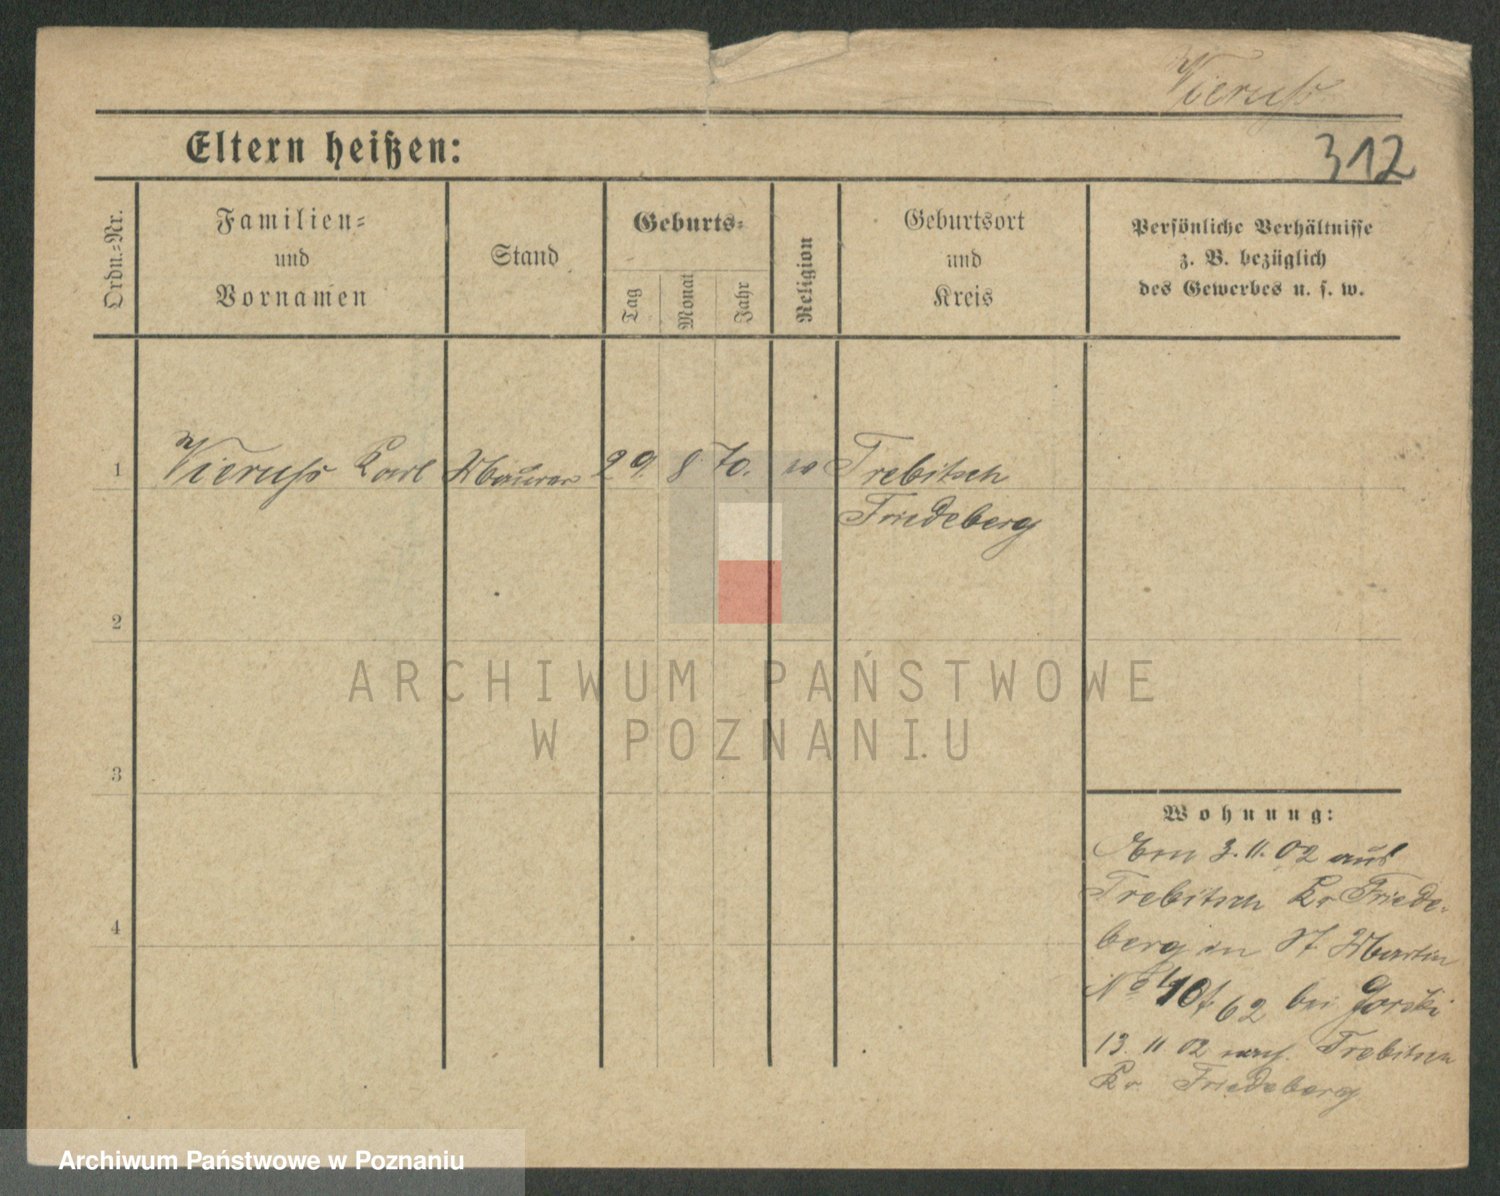 Vieruss
Eltern heißen:
312
Ordn.=Nr.
Familien=
und
Vornamen
Stand
Geburts=
Tag
Monat
Jahr
Religion
Geburtsort
und
Kreis
Persönliche Verhältnisse
z. B. bezüglich
des Gewerbes u. s. w.
1 Vieruss Karl Maurer 29. 8 70. Trebitsch
Friedeberg
2
3
4
ARCHIWUM PAŃSTWOWE
W POZNANIU
Wohnung:
3. 11. 02 aus
Trebitsch Kr Friede-
berg in St Martin
No 62 bei Gorski
13. 11. 02 nach Trebitsch
Kr Friedeberg
Archiwum Państwowe w Poznaniu